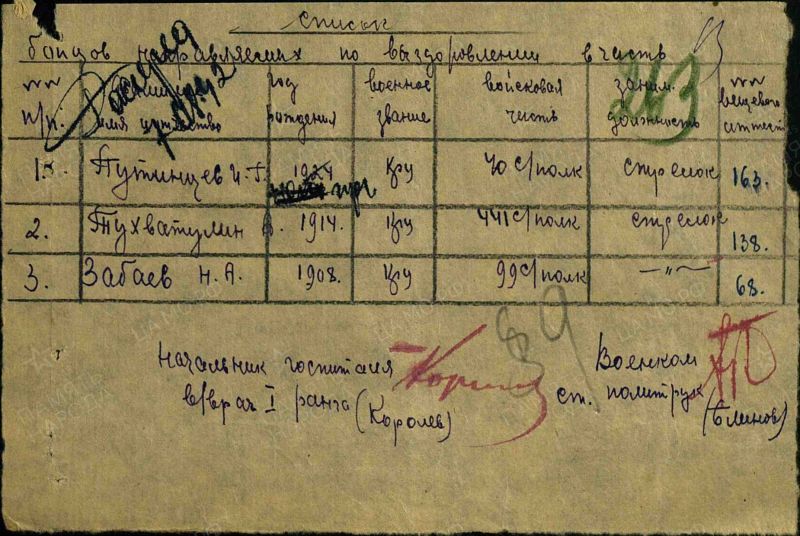 Список
бойцов направляемых по выздоровлении в часть
№№ п/п. имя отчество год рождения военное звание войсковая часть заним. должность №№ вещевого аттест
1. Путинцев И.Г. 1924 кр-ц 40 с/полк стрелок 163.
2. Тухватулин 1914. кр-ц 441 с/полк стрелок 138.
3. Забаев Н.А. 1908. кр-ц 99 с/полк —„— 68.
Начальник госпиталя Военком
в/врач I ранга (Королев) ст. политрук (Блинов)